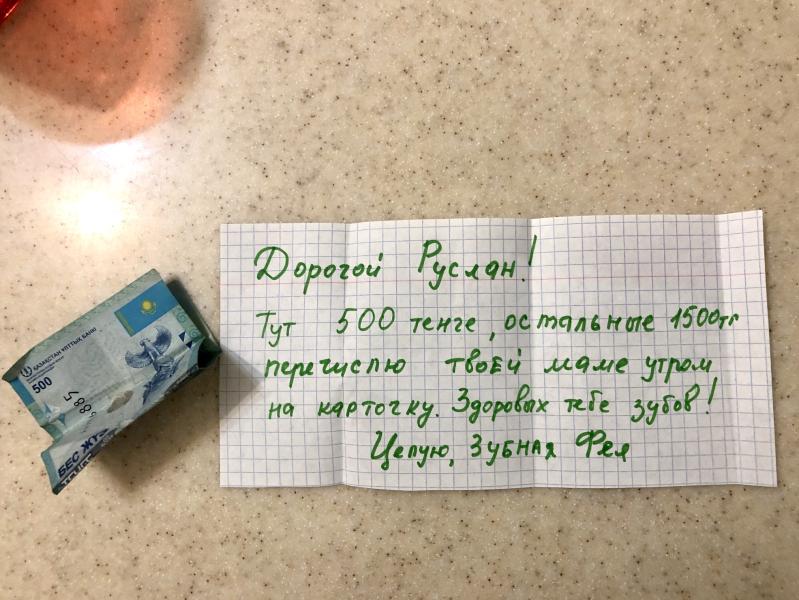 Дорогой Руслан!
Тут 500 тенге, остальные 1500тг
перечислю твоей маме утром
на карточку. Здоровых тебе зубов!
Целую, Зубная Фея
ҚАЗАҚСТАН ҰЛТТЫҚ БАНКІ
500
885
БЕС ЖҮЗ